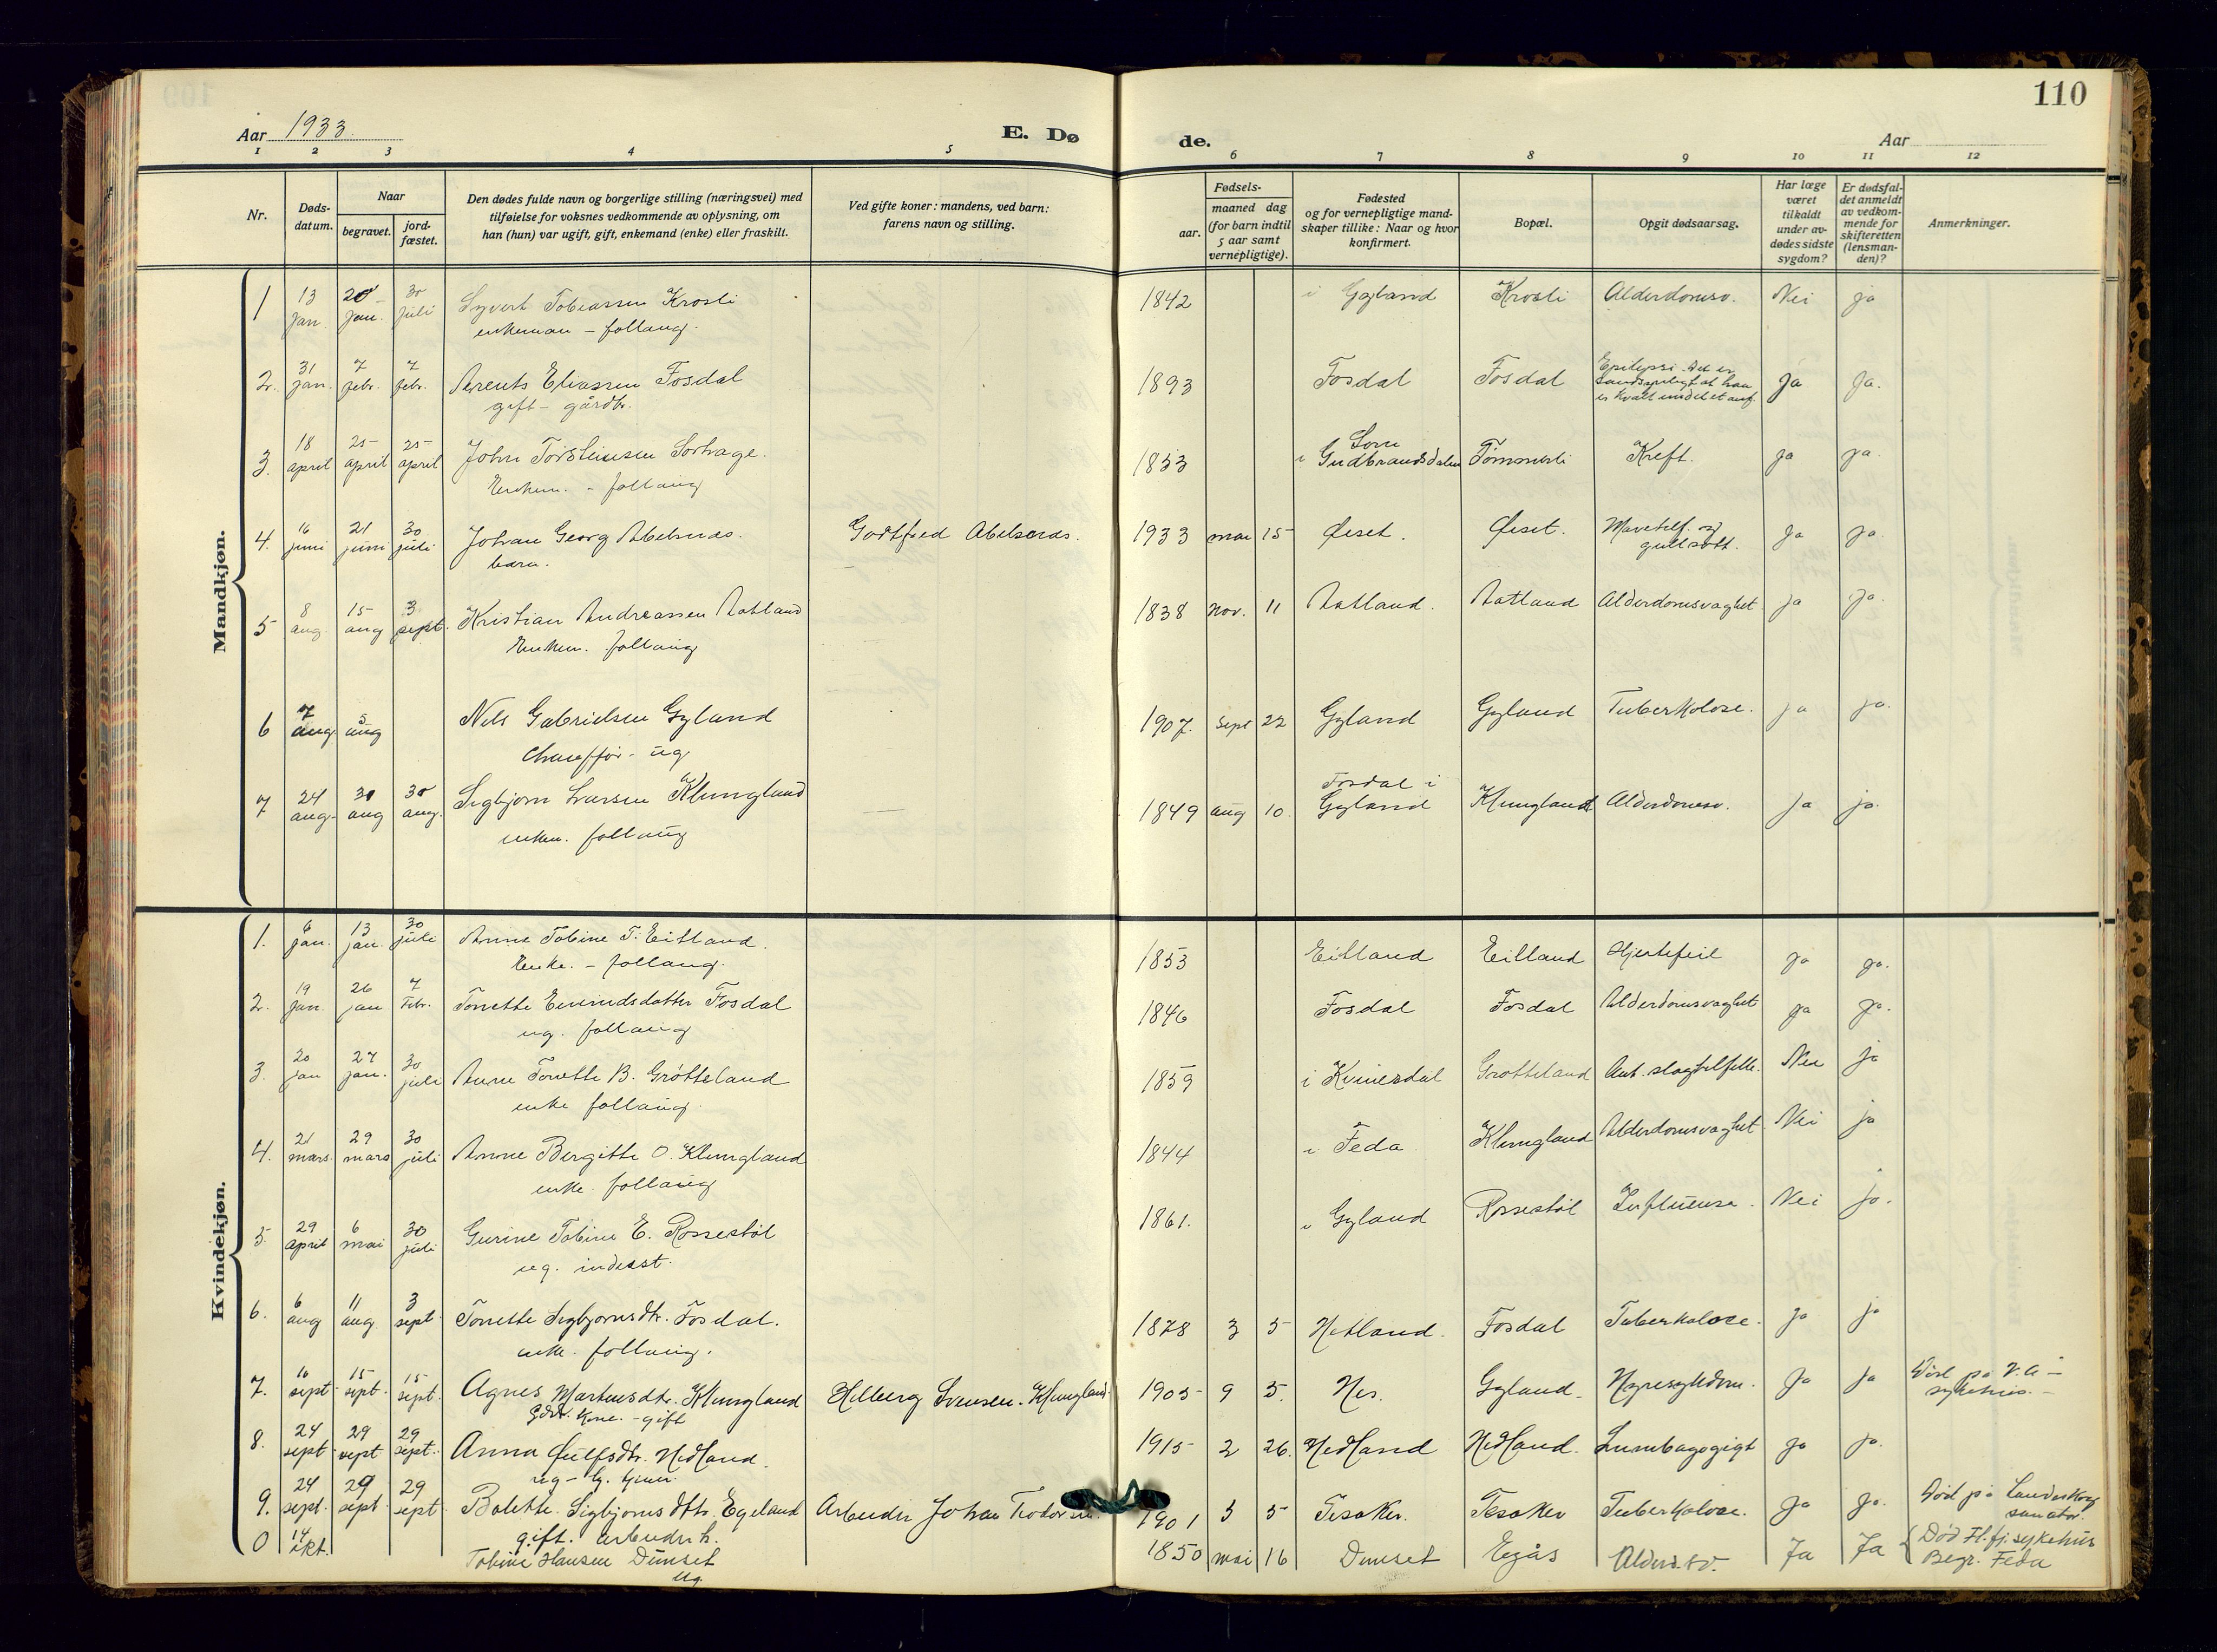 110
Aar 1933
E. Dø de.
Aar
1 2 3 4 5 6 7 8 9 10 11 12
Nr.
Døds-
datum.
Naar
begravet.
jord-
fæstet.
Den dødes fulde navn og borgerlige stilling (næringsvei) med
tilføielse for voksnes vedkommende av oplysning, om
han (hun) var ugift, gift, enkemand (enke) eller fraskilt.
Ved gifte koner: mandens, ved barn:
farens navn og stilling.
Fødsels-
aar.
maaned dag
(for barn indtil
5 aar samt
vernepligtige).
Fødested
og for vernepligtige mand-
skaper tillike: Naar og hvor
konfirmert.
Bopæl.
Opgit dødsaarsag.
Har læge
været
tilkaldt
under av-
dødes sidste
sygdom?
Er dødsfal-
det anmeldt
av vedkom-
mende for
skifteretten
(lensman-
den)?
Anmerkninger.
Mandkjøn.
1 13 jan. 20 jan. 30 juli Syvert Tobiassen Krosli 1842 i Gyland Krosli Alderdomsv. Nei ja
enkeman – follaug.
2. 31 jan. 7 febr. 7 febr. Arents Eliassen Fosdal 1893 Fosdal Fosdal Epilepsi. Det er
sandsynligt at han
er kvalt under et anf. Ja Ja.
gift – gårdbr.
3. 18 april 25 april 25 april John Torsteinsen 1853 i Gudbrandsdalen Tømmerli Kreft. ja ja.
Enkem. – follaug
4. 16 juni 21 juni 30 juli Johan Georg Abelsnæs. Godtfred Abelsnes. 1933 mai 15 Øiset. Øiset. Mavetilf. og
gullsott. Ja ja.
barn.
5 8 aug. 15 aug 3 sept. Kristian Andreassen Aatland 1838 nov. 11 Aatland. Aatland Alderdomsvaghet ja ja.
Enkem. follaug
6 7 aug 5 aug Nils Gabrielsen Gyland 1907. sept 22 Gyland Gyland Tuberkolose. ja ja.
Chauffør – ug
7 24 aug. 30 aug 30 aug. Sigbjørn Larsen Klungland 1849 aug 10. Fosdal i
Gyland Klungland Alderdomsv. Ja ja.
enkem. follaug
Kvindekjøn.
1. 6 jan. 13 jan. 30 juli Anne Tobine T. Eitland. 1853 Eitland Eitland Hjertefeil ja ja.
Enke. – follaug.
2. 19 jan. 26 jan 7 Febr. Tonette Eivindsdatter Fosdal 1846 Fosdal Fosdal Alderdomsvaghet ja ja.
ug. follaug
3. 20 jan 27 jan. 30 juli Anne Tonette B. Grøtteland 1859 i Kvinesdal Grøtteland Ant. slagtilfelle. Nei ja
enke follaug.
4. 21 mars. 29 mars 30 juli Anne Bergitte O. Klungland 1844 i Feda Klungland Alderdomsvaghet Nei ja
enke. follaug
5. 29 april 6 mai 30 juli Gurine Tobine E. Rossestøl 1861. i Gyland Rossestøl Influensa. Nei ja.
ug. inderst.
6. 6 aug 11 aug. 3 sept. Tonette Sigbjørnsdtr. Fosdal. 1878 3 5 Netland. Fosdal Tuberkolose. Ja ja
enke. follaug.
7. 10 sept. 15 sept. 15 sept. Agnes Martinsdtr. Klungland Helberg Svensen. Klungland. 1905 9 5. Nes. Gyland. Nyresykdom. Ja Ja Død på V.A –
sykehus. –
Gdbr. kone. – gift
8. 24 sept. 29 sept 29 sept. Anna Øiulfsdtr. Nedland. 1915 2 26. Nedland Nedland. Lumbagogigt Ja ja.
9. 24 sept. 29 sept 29 sept Bolette Sigbjørnsdtr. Egeland Arbeider Johan 1901 5 5 Tesaker. Tesaker Tuberkolose. Ja Ja. Død på Landeskog
sanator.
gift. arbeiderk.
0 14 okt. Tobine Hansen Dunset 1850 mai 16 Dunset Egås Alders.sv. Ja Ja Død Fl.fj. sykehus
Begr. Feda
ug.